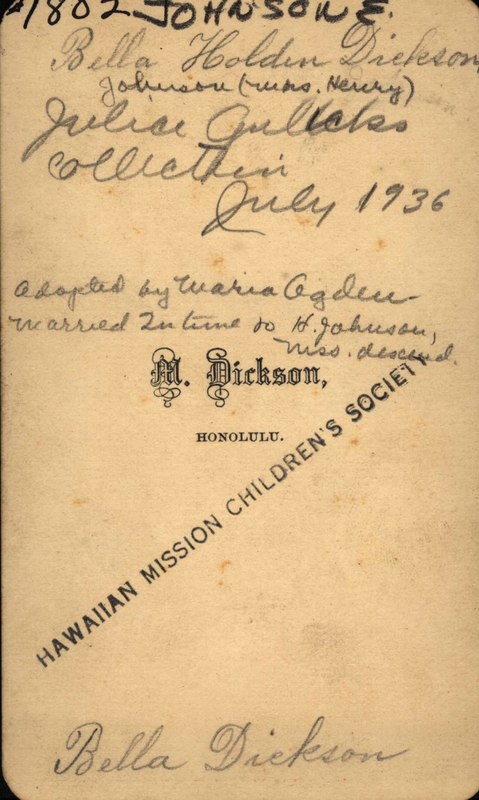 1802 JOHNSON E.
Bella Holden Dickson
Johnson (Mrs. Henry)
Julice Gulicks
Collection
July 1936
Adopted by Maria Ogden
married in time to H. Johnson,
Miss. descend.
M. Dickson,
HONOLULU.
HAWAIIAN MISSION CHILDREN'S SOCIETY
Bella Dickson